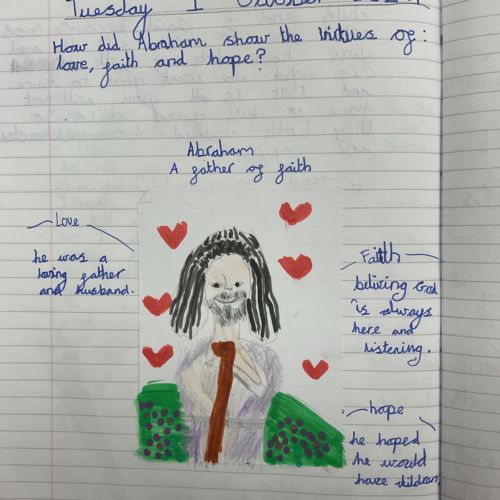 Tuesday 1 October
How did Abraham show the virtues of:
love, faith and hope?
Abraham
A father of faith
Love
he was a
loving father
and husband.
Faith
beliving God
is always
here and
listening.
hope
he hoped
he would
have children